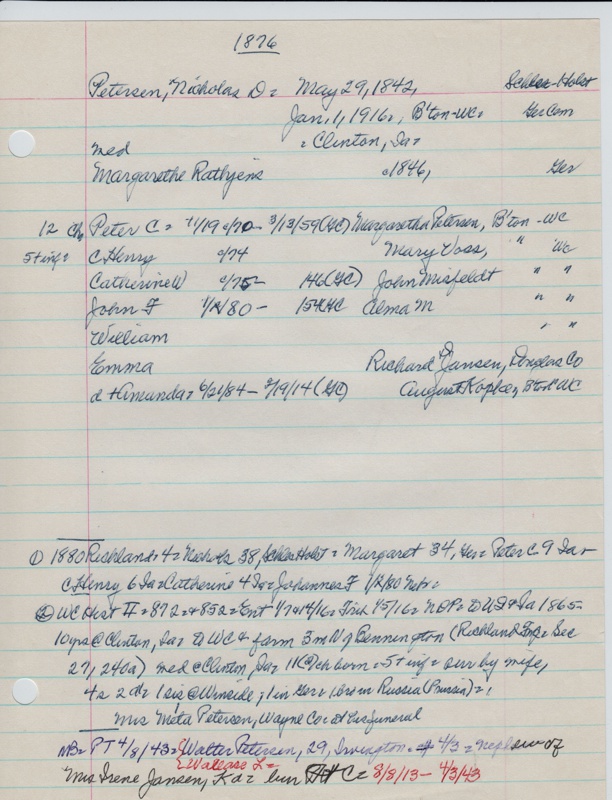 1876
Petersen, Nicholas D = May 29, 1842, Schles-Holst
Jan. 1, 1916, B'ton-WC= Ger Com
= Clinton, Ia=
med
Margarethe Rathjens c1846, Ger
12 Ch, Peter C = 11/19 c/70 - 3/13/59 (GC) Margaretha Petersen, B'ton - WC
5 ting= C Henry c/74 Mary Voss, " WC
Catherine W c/75- /46 (GC) John Misfeldt " "
John F 1/12/80 - /54 GC Alma M " "
William " "
Emma Richard Jansen, Douglas Co
d + Amanda = 6/21/84 - 2/19/14 (GC) August Kopke, B'ton WC
① 1880 Richland = 4 = Nichols 38, Schles Holst = Margaret 34, Ger = Peter C 9 Ia =
C Henry 6 Ia = Catherine 4 Ia = Johannes F 1/12/80 Nebr =
② WC Hist II = 872 = + 852 = Ent 1/7 + 14/16 = Trib 1/5/16 = NDP = to US + Ia 1865-
10 yrs @ Clinton, Ia = to WC + farm 3 m N of Bennington (Richland = Sec
27, 240a) med @ Clinton, Ia = 11(?) ch born = 5 ting = surv by wife,
4s 2d = 1 sis @ Urneside; 1 in Ger = 1 bro in Russia (Prussia) =,
Mrs Meta Petersen, Wayne Co = at his funeral
NB = PT 4/8/43 = Walter Petersen, 29, Irvington = 4/3 = nephew of
Wallace L =
Mrs Irene Jansen, K d = bur C = 8/8/13 - 4/3/43